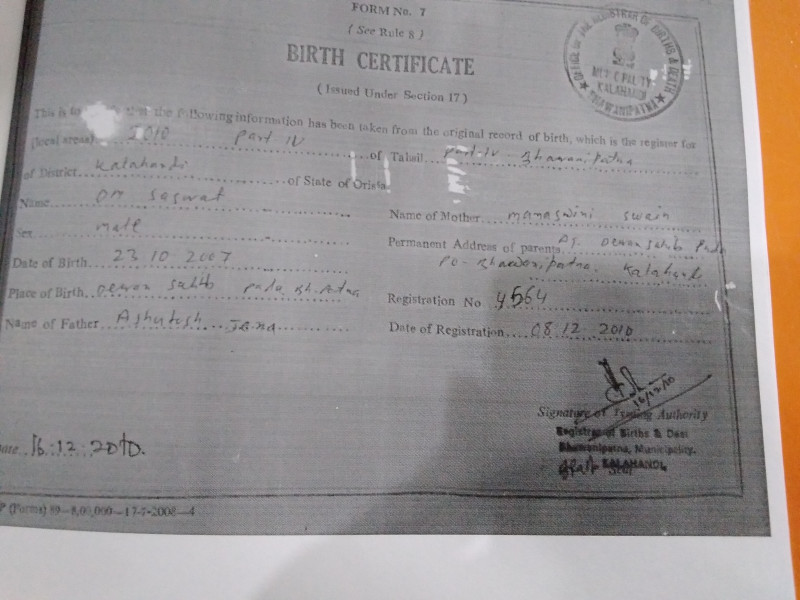 FORM No. 7
( See Rule 8 )
BIRTH CERTIFICATE
( Issued Under Section 17 )
OFFICE OF THE REGISTRAR OF BIRTHS & DEATH
MUNICIPALITY
KALAHANDI
BHAWANIPATNA
This is to that the following information has been taken from the original record of birth, which is the register for
(local areas) 2010 Part IV of Tahsil Part-IV - Bhawanipatna
of District Kalahandi of State of Orissa
Name Om Saswat
Name of Mother Manaswini Swain
Sex Male
Permanent Address of parents At. Dewan Sahib Pada
PO - Bhawanipatna. Kalahandi
Date of Birth 23 10 2007
Place of Birth Dewan Sahib Pada Bh. Patna
Registration No 4564
Name of Father Ashutosh Jena
Date of Registration 08 12 2010
16/12/10
Signature of Issuing Authority
Registrar of Births & Deat
Bhawanipatna, Municipality.
KALAHANDI
Seal
Date 16.12.2010.
P (Forms) 89—8,00,000—17-7-2008—4